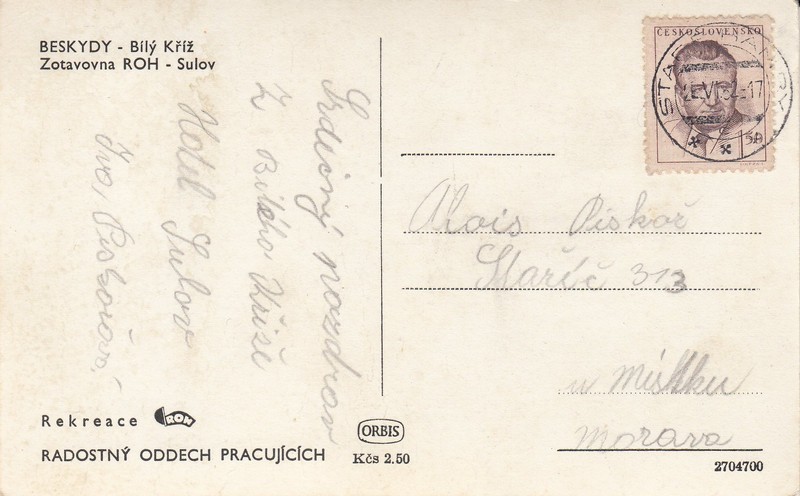 BESKYDY - Bílý Kříž
Zotavovna ROH - Sulov
Srdečný pozdrav
Z Bílého Kříže
Hotel Sulov
Ivo, Piskořovi
ČESKOSLOVENSKO
1.50
Alois Piskoř
Staříč 313
u Místku
Morava
Rekreace ROH
RADOSTNÝ ODDECH PRACUJÍCÍCH
ORBIS
Kčs 2.50
2704700